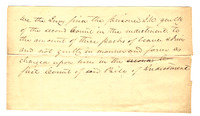 We the Jury find the Prisoner Ct guilty
of the second Count in the indictment to
the amount of three packs of beaver skins
and not guilty in manner and form as
charged upon him in the second
first Count of said Bill of Indictment